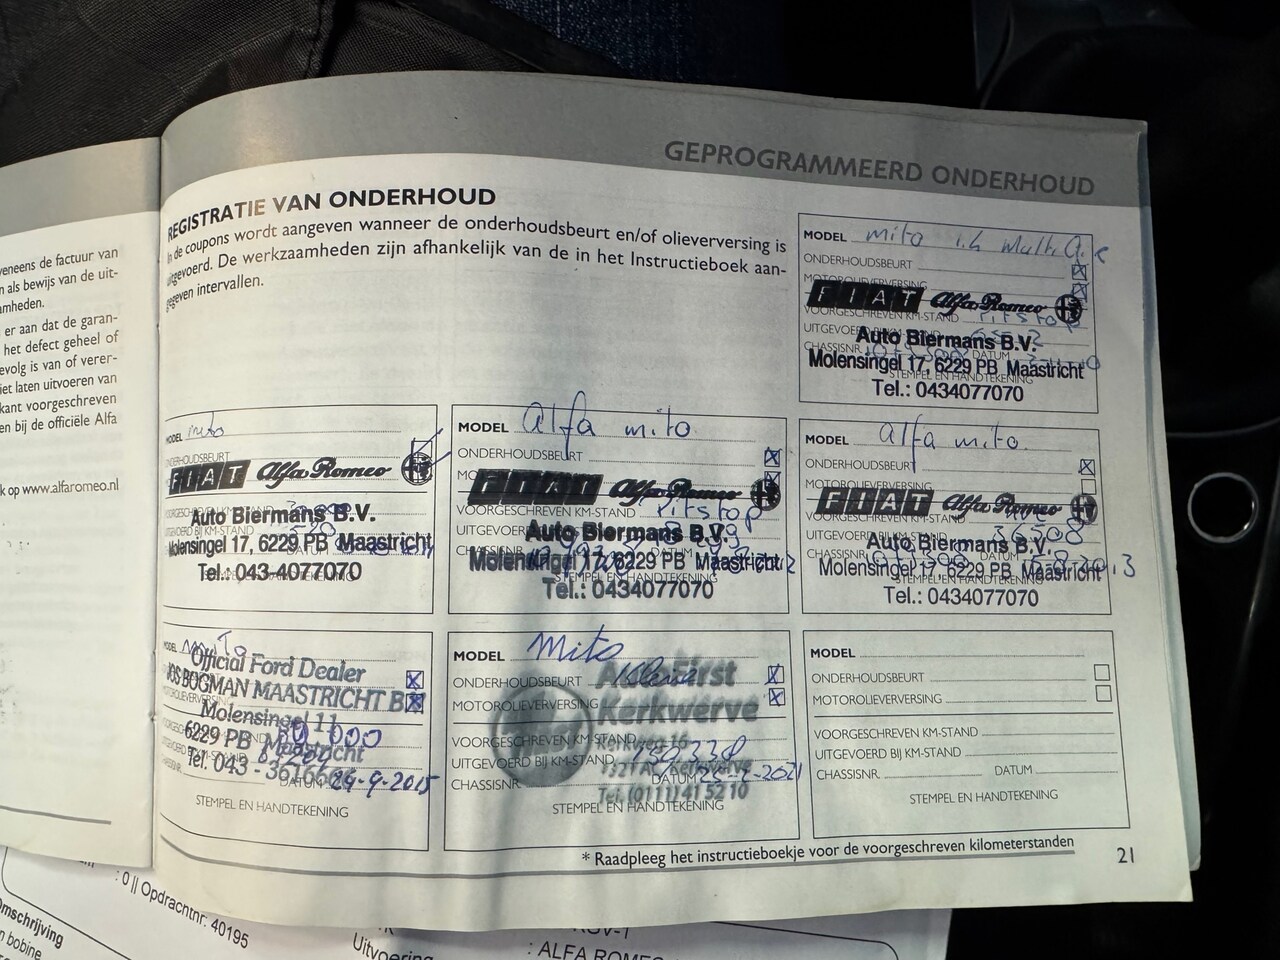 veneens de factuur van
n als bewijs van de uit-
amheden.
er aan dat de garan-
het defect geheel of
evolg is van of verer-
iet laten uitvoeren van
kant voorgeschreven
en bij de officiële Alfa
k op www.alfaromeo.nl
GEPROGRAMMEERD ONDERHOUD
REGISTRATIE VAN ONDERHOUD
In de coupons wordt aangeven wanneer de onderhoudsbeurt en/of olieverversing is
uitgevoerd. De werkzaamheden zijn afhankelijk van de in het Instructieboek aan-
gegeven intervallen.
MODEL mito 1.4
ONDERHOUDSBEURT
MOTOROLIEVERVERSING
FIAT Alfa Romeo
VOORGESCHREVEN KM-STAND Pitstop
UITGEVOERD BIJ KM-STAND
Auto Biermans B.V.
CHASSISNR. DATUM
Molensingel 17, 6229 PB Maastricht
STEMPEL EN HANDTEKENING
Tel.: 0434077070
MODEL mito
ONDERHOUDSBEURT
FIAT Alfa Romeo
VOORGESCHREVEN KM-STAND
Auto Biermans B.V.
UITGEVOERD BIJ KM-STAND
Molensingel 17, 6229 PB Maastricht
Tel.: 043-4077070
MODEL Alfa mito
ONDERHOUDSBEURT
FIAT Alfa Romeo
VOORGESCHREVEN KM-STAND Pitstop
UITGEVOERD
Auto Biermans B.V.
CHASSISNR. DATUM
Molensingel 17, 6229 PB Maastricht
STEMPEL EN HANDTEKENING
Tel.: 0434077070
MODEL Alfa mito
ONDERHOUDSBEURT
MOTOROLIEVERVERSING
FIAT Alfa Romeo
VOORGESCHREVEN KM-STAND
UITGEVOERD BIJ KM-STAND 36508
Auto Biermans B.V.
CHASSISNR. DATUM
Molensingel 17, 6229 PB Maastricht
STEMPEL EN HANDTEKENING
Tel.: 0434077070
MODEL MiTo
Official Ford Dealer
JOS BOGMAN MAASTRICHT B
Molensingel 11
6229 PB Maastricht
Tel. 043 -
DATUM 24-9-2015
STEMPEL EN HANDTEKENING
MODEL Mito
ONDERHOUDSBEURT
MOTOROLIEVERVERSING
AutoFirst
Kerkwerve
VOORGESCHREVEN KM-STAND
Kerkweg 16
UITGEVOERD BIJ KM-STAND
CHASSISNR. DATUM
Tel. (0111) 41 52 10
STEMPEL EN HANDTEKENING
MODEL
ONDERHOUDSBEURT
MOTOROLIEVERVERSING
VOORGESCHREVEN KM-STAND
UITGEVOERD BIJ KM-STAND
CHASSISNR. DATUM
STEMPEL EN HANDTEKENING
* Raadpleeg het instructieboekje voor de voorgeschreven kilometerstanden
21
: 0 || Opdrachtnr: 40195
Omschrijving
n bobine
Uitvoering
: ALFA ROMEO